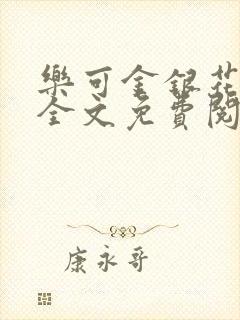 樂可金銀花
全文免費閱
康永哥